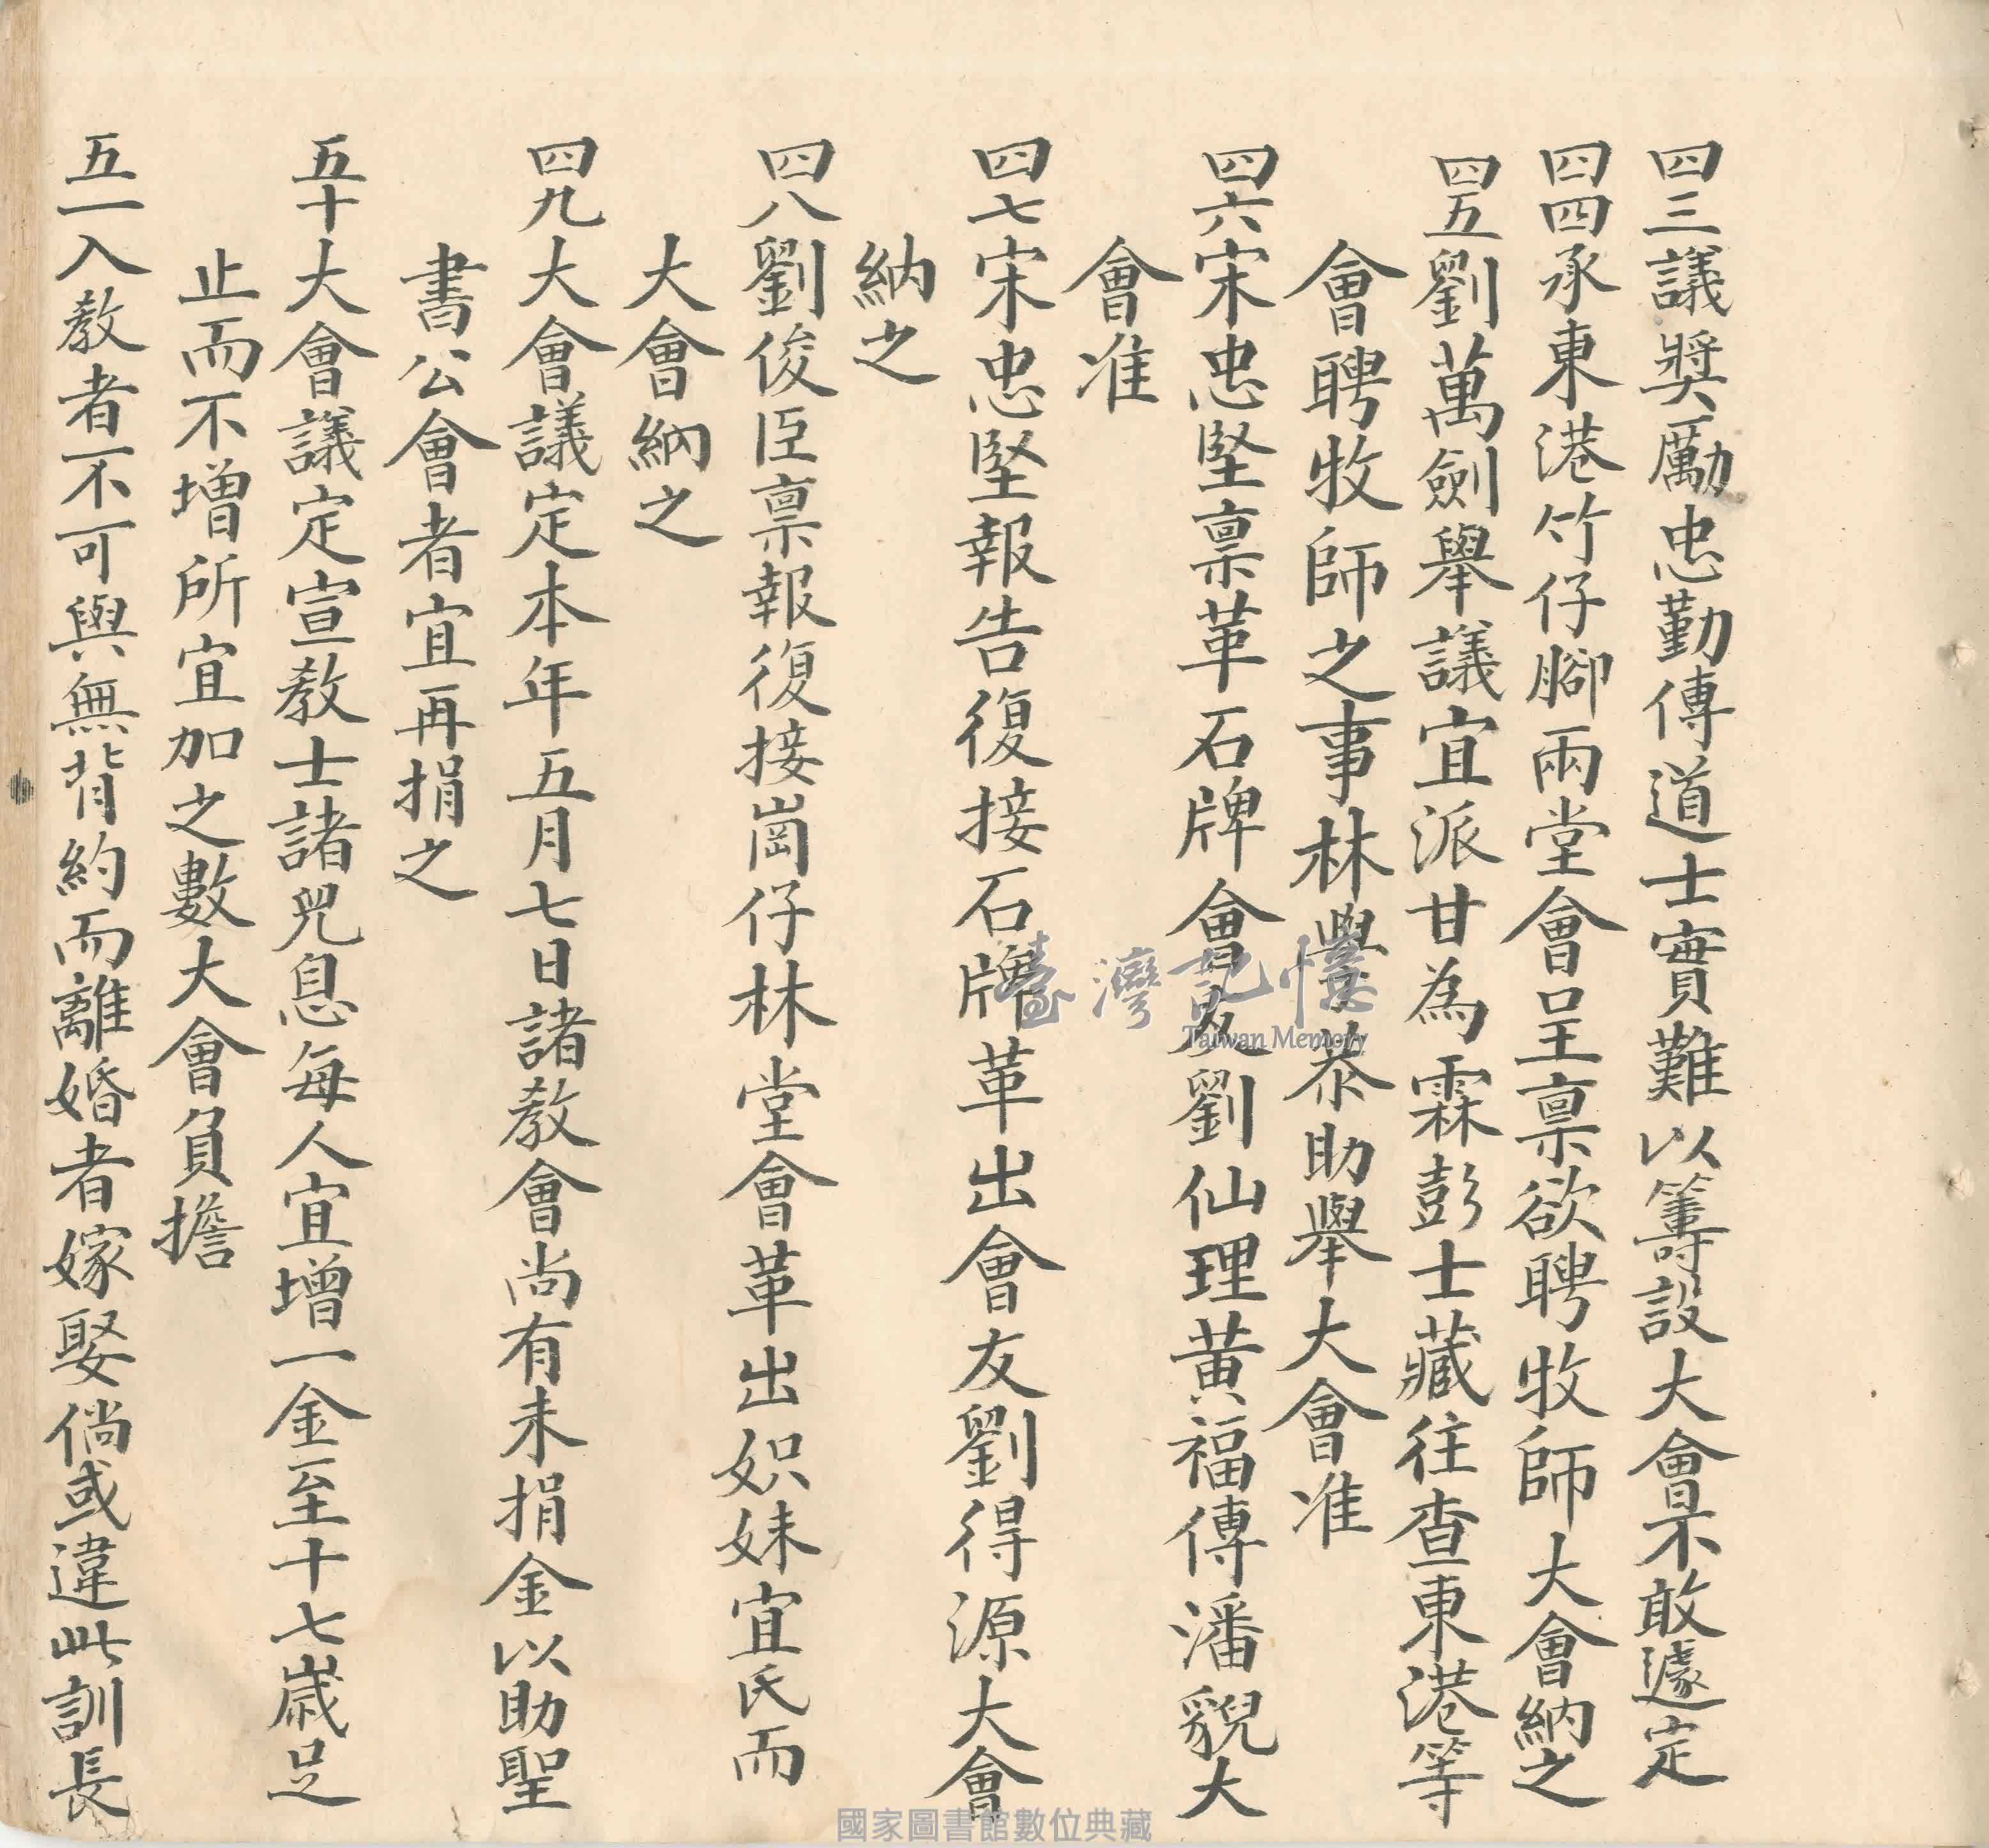 四三議奬勵忠勤傳道士實難以籌設大會果不敢遽定
四四承東港竹仔腳兩堂會呈禀欲聘牧師大會納之
四五劉萬劍舉議宜派甘為霖彭士藏往查東港等
會聘牧師之事林學恭助舉大會准
四六宋忠堅禀革石牌會友劉仙理黃福傳潘貎大
會准
四七宋忠堅報告復接石牌革出會友劉得源大會
納之
四八劉俊臣禀報復接崗仔林堂會革出姒妹宜氏而
大會納之
四九大會議定本年五月七日諸教會尚有未捐金以助聖
書公會者宜再捐之
五十大會議定宣教士諸兒息每人宜增一金至十七歲足
止而不增所宜加之數大會負擔
五一入教者不可與無背約而離婚者嫁娶倘或違此訓長
臺灣記憶
Taiwan Memory
國家圖書館數位典藏